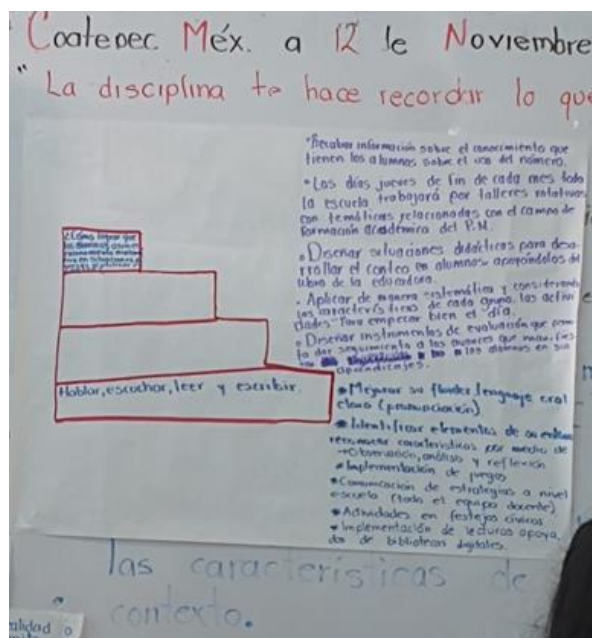 Coatepec Méx. a 12 de Noviembre
"La disciplina te hace recordar lo que
• Recabar información sobre el conocimiento que
tienen los alumnos sobre el uso del número.
• Los días jueves de fin de cada mes toda
la escuela trabajará por talleres rotativos
con temáticas relacionadas con el campo de
formación académica del P.M.
• Diseñar situaciones didácticas para desa
rrollar el conteo en alumnos apoyándolos del
libro de la educadora.
• Aplicar de manera sistemática y considerando
las características de cada grupo, las activi
dades Para empezar bien el día.
• Diseñar instrumentos de evaluación que
dar seguimiento a los avances que
los alumnos en sus
aprendizajes.
¿Cómo lograr que
los alumnos
razonamiento
Hablar, escuchar, leer y escribir.
• Mejorar su fluidez, lenguaje oral
claro (pronunciación)
• Identificar elementos de su entorno
reconocer características por medio de
→ Observación, análisis y reflexión
• Implementación de juegos
• Comunicación de estrategias a nivel
escuela (todo el equipo docente)
• Actividades en festejos cívicos
• Implementación de lecturas apoya
das de bibliotecas digitales.
las características de
contexto.